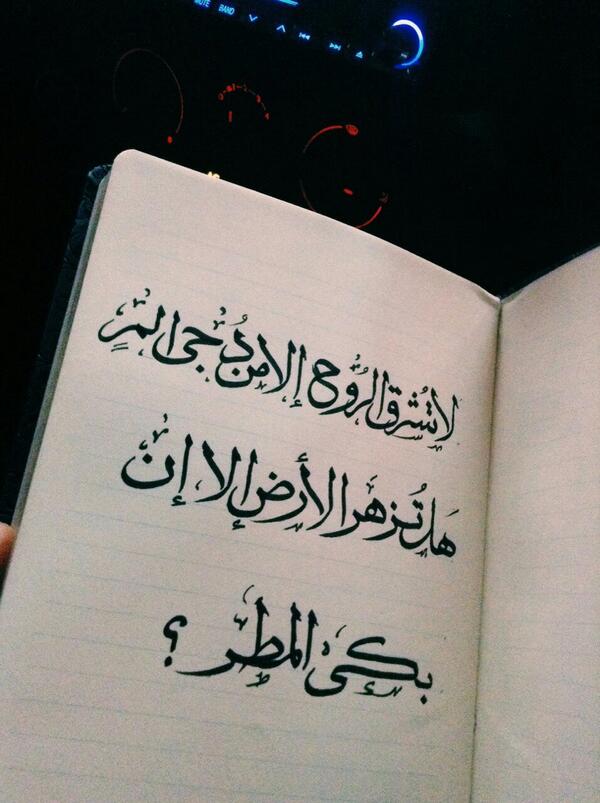 MUTE BAND
لا تُشرق الرُّوح إلا من دُجى المٍ
هل تُزهر الأرض إلا إن
بكى المطر ؟